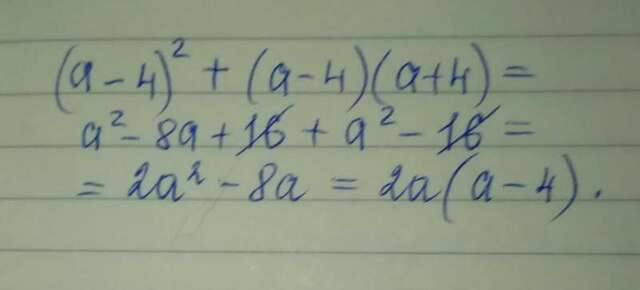 (a-4)² + (a-4)(a+4) =
a² - 8a + 16 + a² - 16 =
= 2a² - 8a = 2a(a-4).